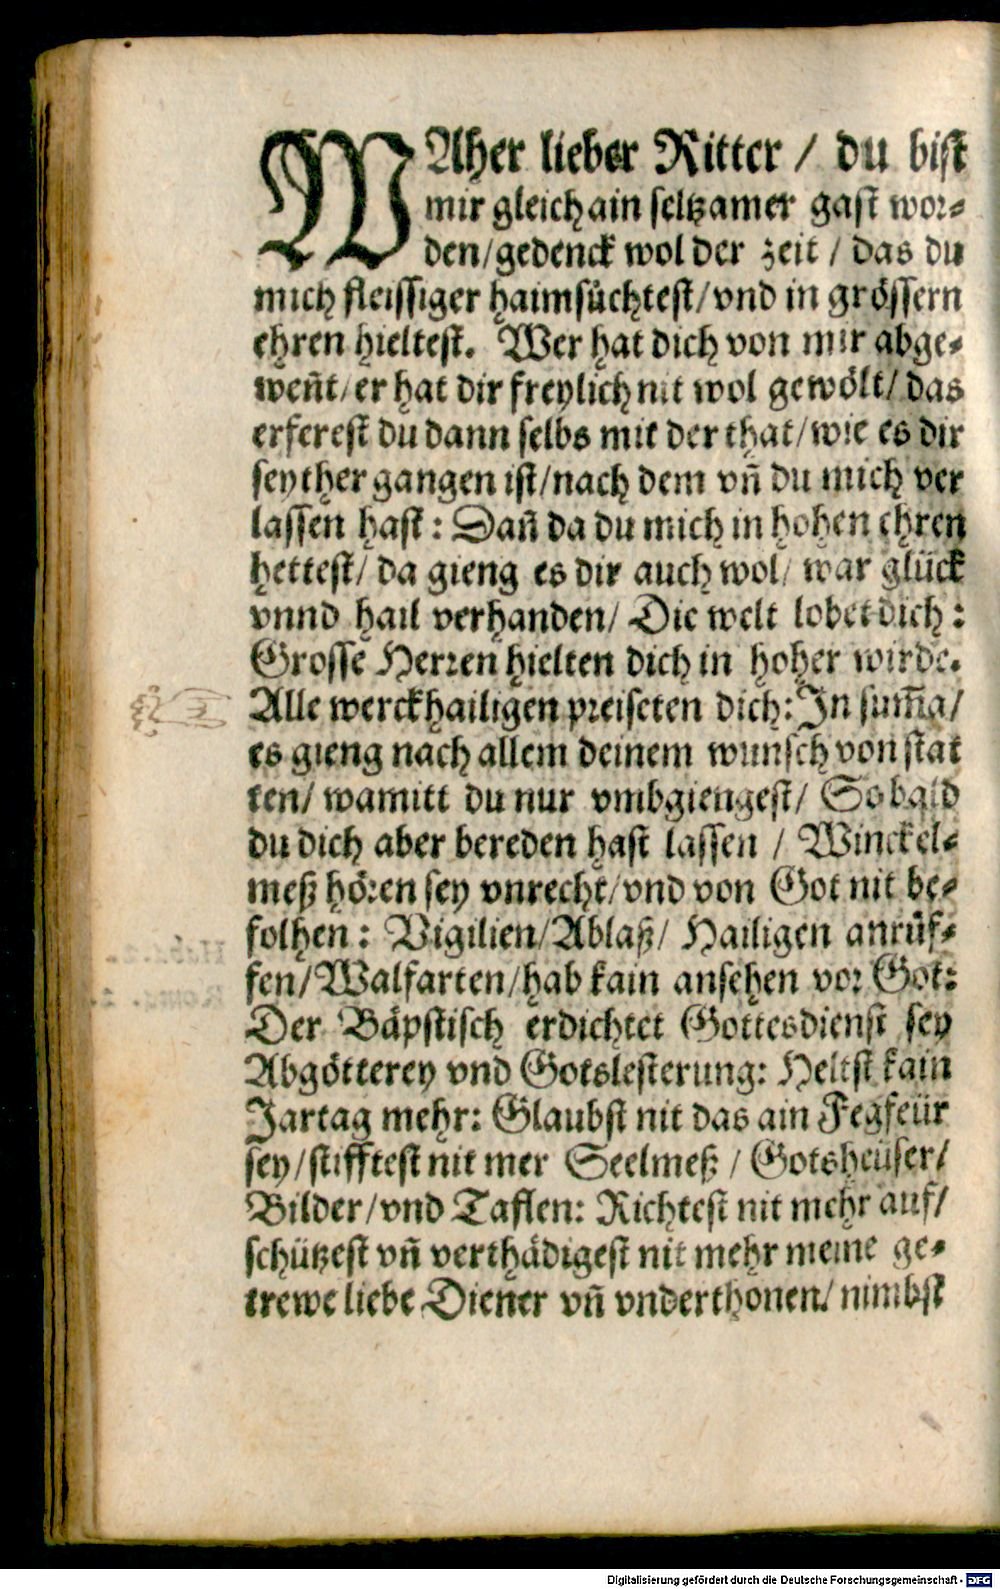 WAher lieber Ritter / du bist
mir gleich ain seltzamer gast wor⸗
den/gedenck wol der zeit / das du
mich fleissiger haimsůchtest/vnd in grössern
ehren hieltest. Wer hat dich von mir abge⸗
weñt/er hat dir freylich nit wol gewölt/das
erferest du dann selbs mit der that/wie es dir
seyther gangen ist/nach dem vñ du mich ver
lassen hast: Dañ da du mich in hohen ehren
hettest/ da gieng es dir auch wol/ war glück
vnnd hail verhanden/ Die welt lobet dich:
Grosse Herren hielten dich in hoher wirde.
Alle werckhailigen preiseten dich: In sum̃a/
es gieng nach allem deinem wunsch von stat
ten/ wamitt du nur vmbgiengest/ So bald
du dich aber bereden hast lassen / Winckel⸗
meß hören sey vnrecht/vnd von Got nit be⸗
folhen: Vigilien/Ablaß/ Hailigen anrůf⸗
fen/Walfarten/hab kain ansehen vor Got:
Der Bäpstisch erdichtet Gottesdienst sey
Abgötterey vnd Gotslesterung: Heltst kain
Jartag mehr: Glaubst nit das ain Fegfeür
sey/stifftest nit mer Seelmeß / Gotsheüser/
Bilder/vnd Taflen: Richtest nit mehr auf/
schützest vñ verthädigest nit mehr meine ge⸗
trewe liebe Diener vñ vnderthonen/ nimbst
Digitalisierung gefördert durch die Deutsche Forschungsgemeinschaft - DFG